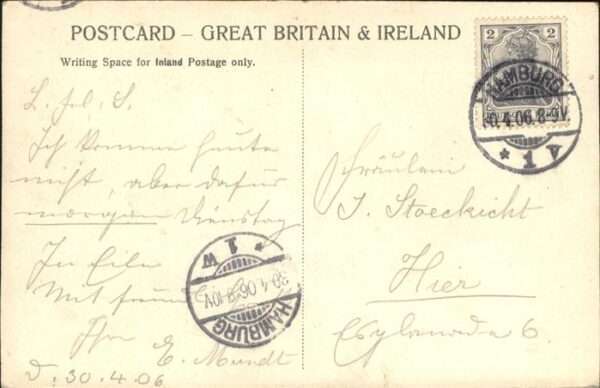 POSTCARD – GREAT BRITAIN & IRELAND –
Writing Space for Inland Postage only.
L. Frl. S.
Ich komme heute
nicht, aber dafür
morgen Dienstag
In Eile
Mit
Ihr E. Mundt
d. 30.4.06
Fräulein
J. Stoeckicht
Hier
Esplanade 6.
2
2
HAMBURG
30.4.06.8-9V.
* 1 V
* 1 W
30.4.06.9-10V
HAMBURG